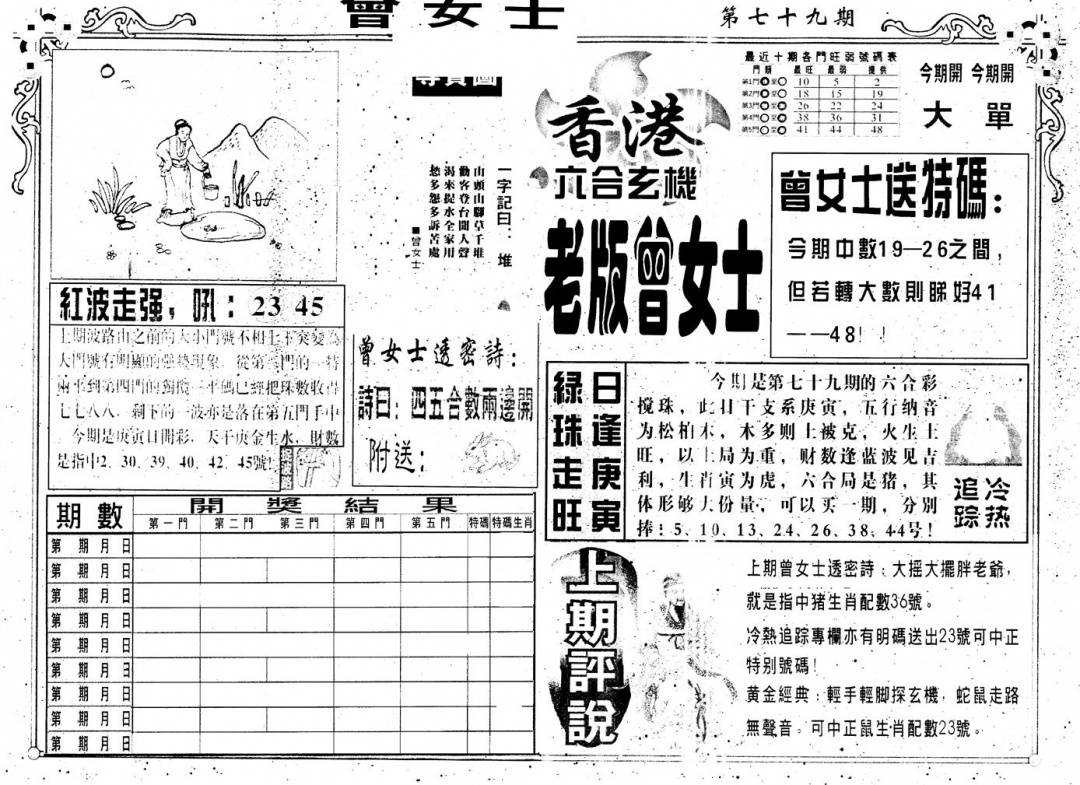 曾女士
第七十九期
尋寶圖
一字記曰：堆
山頭山腳草千堆
勸客登台聞人聲
渴來提水全家用
愁多怨多訴苦處
■曾女士
紅波走强，吼：23 45
上期波路由之前的大小門號不相上下突變為
大門號有明顯的強勢現象，從第三門的一特
兩平到第四門的
平碼已經把珠數收得
七七八八，剩下的一波亦是落在第五門手中
今期是庚寅日開彩，天干庚金生水，財數
是指中2、30、39、40、42、45號！
曾女士透密詩：
詩曰：四五合數兩邊開
附送：
期數
開獎結果
第一門 第二門 第三門 第四門 第五門 特碼 特碼生肖
第 期 月 日
第 期 月 日
第 期 月 日
第 期 月 日
第 期 月 日
第 期 月 日
第 期 月 日
第 期 月 日
第 期 月 日
香港
六合玄機
老版曾女士
最近十期各門旺弱號碼表
門類 最旺 最弱 提供
第1門 至 10 5 2
第2門 至 18 15 19
第3門 至 26 22 24
第4門 至 38 36 31
第5門 至 41 44 48
今期開 今期開
大 單
曾女士送特碼：
今期中數19—26之間，
但若轉大數則睇好41
——48！！
日逢庚寅
綠珠走旺
今期是第七十九期的六合彩
搅珠，此日干支系庚寅，五行纳音
为松柏木，木多则土被克，火生土
旺，以土局为重，财数逢蓝波见吉
利，生肖寅为虎，六合局是猪，其
体形够大份量，可以买一期，分别
捧：5、10、13、24、26、38、44号！
冷热
追踪
上期評說
上期曾女士透密詩：大摇大擺胖老爺，
就是指中猪生肖配數36號。
冷熱追踪專欄亦有明碼送出23號可中正
特别號碼！
黄金經典：輕手輕脚探玄機，蛇鼠走路
無聲音。可中正鼠生肖配數23號。